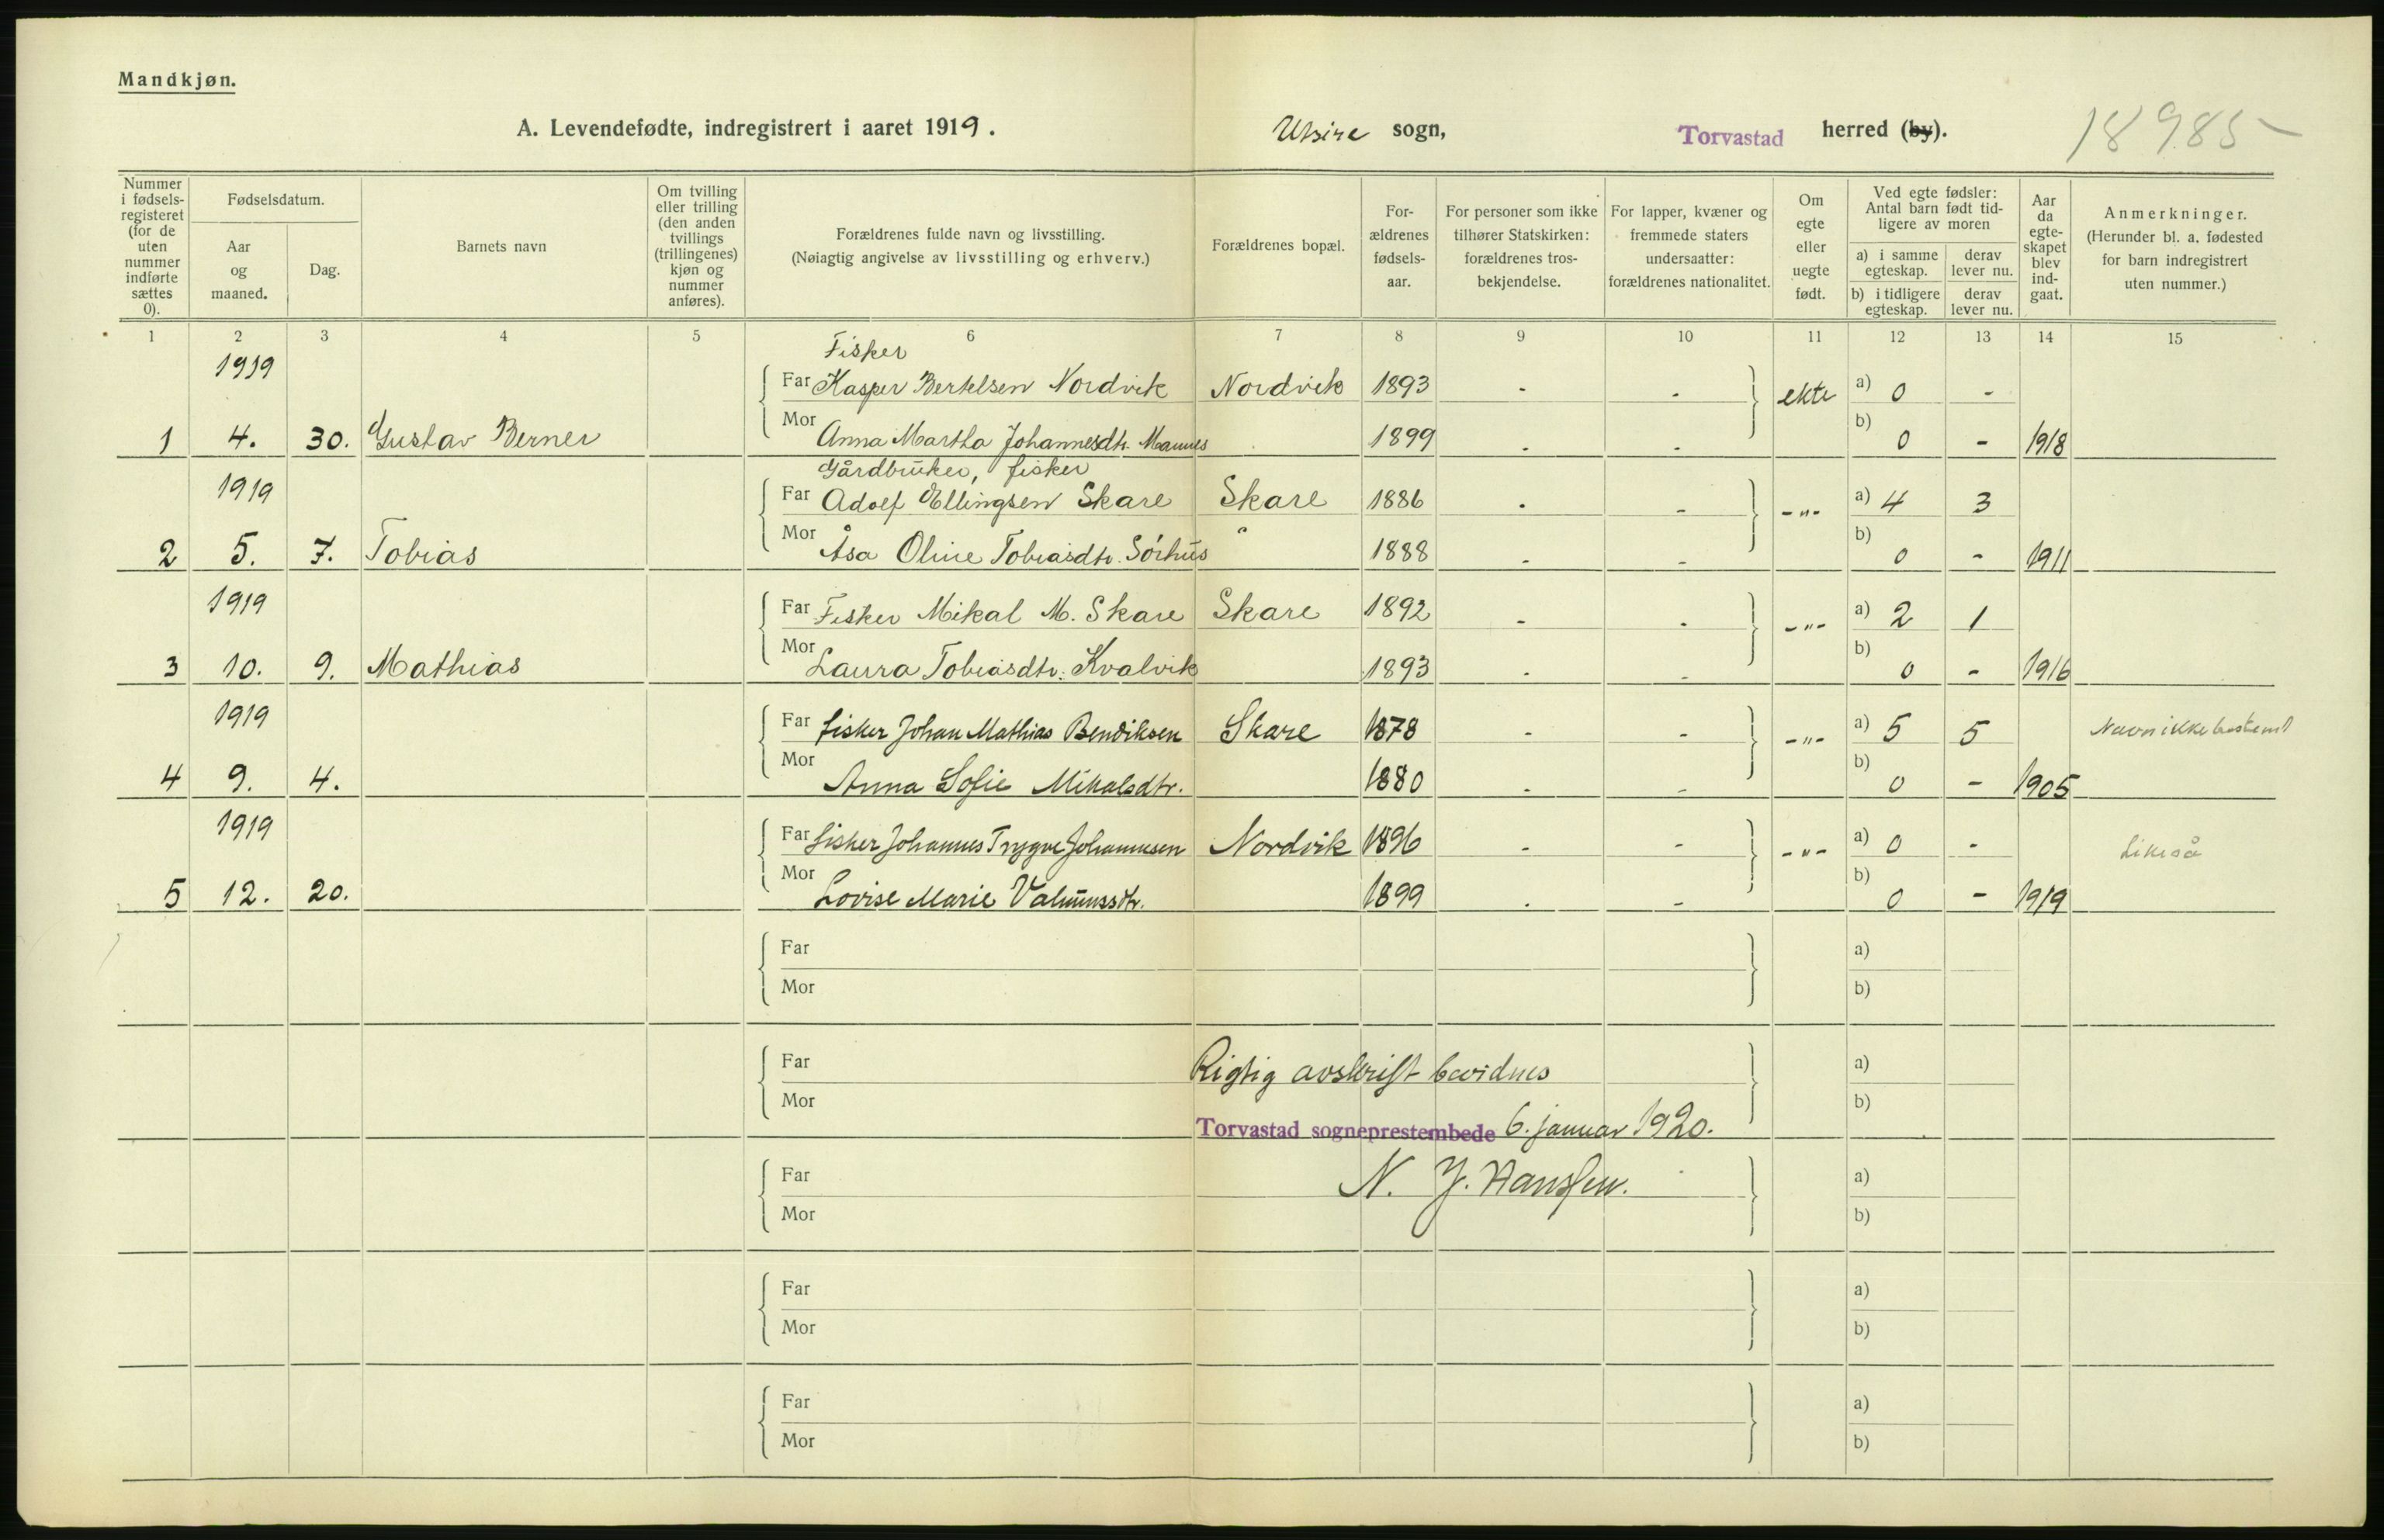 Mandkjøn.
A. Levendefødte, indregistrert i aaret 1919. Utsire sogn, Torvastad herred (by). 18985
Nummer i fødsels-registeret (for de uten nummer indførte sættes 0).
Fødselsdatum.
Aar og maaned.
Dag.
Barnets navn
Om tvilling eller trilling (den anden tvillings (trillingenes) kjøn og nummer anføres).
Forældrenes fulde navn og livsstilling.
(Nøiagtig angivelse av livsstilling og erhverv.)
Forældrenes bopæl.
For-ældrenes fødsels-aar.
For personer som ikke tilhører Statskirken: forældrenes tros-bekjendelse.
For lapper, kvæner og fremmede staters undersaatter: forældrenes nationalitet.
Om egte eller uegte født.
Ved egte fødsler: Antal barn født tid-ligere av moren
a) i samme egteskap. derav lever nu.
b) i tidligere egteskap. derav lever nu.
Aar da egte-skapet blev ind-gaat.
Anmerkninger.
(Herunder bl. a. fødested for barn indregistrert uten nummer.)
1 2 3 4 5 6 7 8 9 10 11 12 13 14 15
Fisker
1919 Far Kasper Bertelsen Nordvik Nordvik 1893 - - ekte a) 0 -
1 4. 30. Gustav Berner Mor Anna Martha Johannesdtr. Mannes 1899 - - b) 0 - 1918
Gårdbruker, fisker
1919 Far Adolf Ellingsen Skare Skare 1886 - - -"- a) 4 3
2 5. 7. Tobias Mor Åsa Oline Tobiasdtr. Sörhus " 1888 - - b) 0 - 1911
1919 Far Fisker Mikal M. Skare Skare 1892 - - -"- a) 2 1
3 10. 9. Mathias Mor Laura Tobiasdtr. Kvalvik 1893 - - b) 0 - 1916
1919 Far fisker Johan Mathias Bendiksen Skare 1878 - - -"- a) 5 5 Navn ikke bestemt
4 9. 4. Mor Anna Sofie Mikalsdtr. 1880 - - b) 0 - 1905
1919 Far fisker Johannes Trygve Johannesen Nordvik 1896 - - -"- a) 0 - Likeså
5 12. 20. Mor Lovise Marie 1899 - - b) 0 - 1919
Far a)
Mor b)
Far Rigtig avskrift bevidnes a)
Mor b)
Torvastad sogneprestembede 6. januar 1920.
Far N. J. Hanssen. a)
Mor b)
Far a)
Mor b)
Far a)
Mor b)